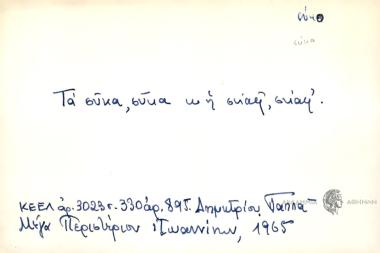 σῦκο
σῦκα
Τὰ σῦκα, σῦκα κ ἡ
ΚΕΕΛ ἀρ. 3023 σ. 330 ἀρ. 895. Δημητρίου Παππᾶ
Μέγα Περιστέριον Ἰωαννίνων, 1965
ΑΘΗΝΩΝ